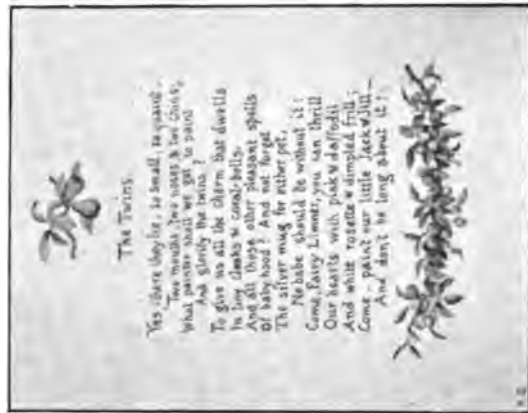 The Twins.
Yes, there they lie, so small, so quaint,
Two mouths, two noses & two chins,
What painter shall we get to paint
And glorify the twins?
To give us all the charm that dwells
In tiny cloaks & coral-bells,
And all those other pleasant spells
Of babyhood? And not forget
The silver mug for either pet,
No babe should be without it:
Come, Fairy Limner, you can thrill
Our hearts with pink & daffodil
And white rosette & dimpled frill;
Come, paint our little Jack & Jill —
And don't be long about it!